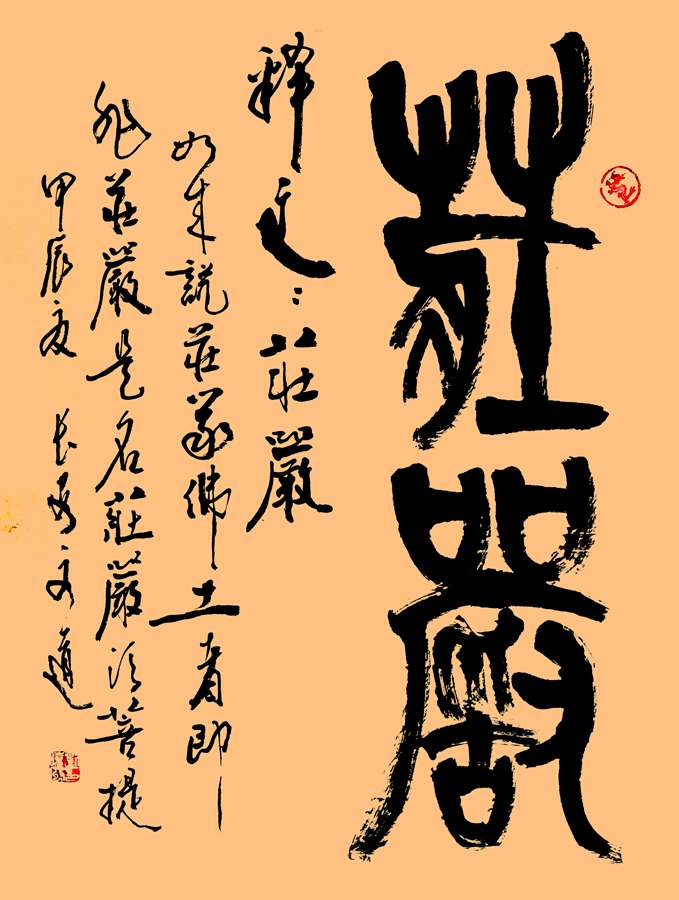 莊嚴
釋文：莊嚴
如来說莊嚴佛土者即
非莊嚴是名莊嚴須菩提
甲辰夏 道